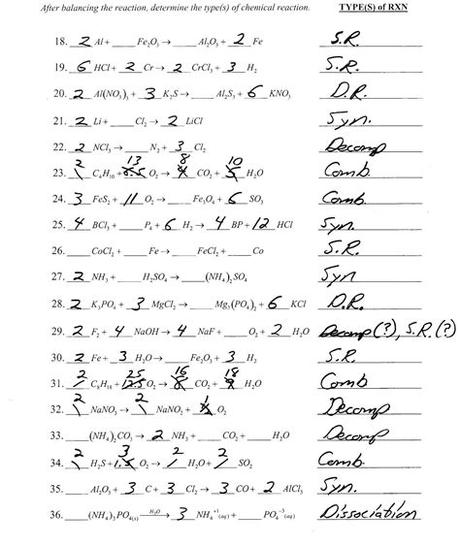 After balancing the reaction, determine the type(s) of chemical reaction. TYPE(S) of RXN
18. 2 Al + ___ Fe₂O₃ → ___ Al₂O₃ + 2 Fe S.R.
19. 6 HCl + 2 Cr → 2 CrCl₃ + 3 H₂ S.R.
20. 2 Al(NO₃)₃ + 3 K₂S → ___ Al₂S₃ + 6 KNO₃ D.R.
21. 2 Li + ___ Cl₂ → 2 LiCl Syn.
22. 2 NCl₃ → ___ N₂ + 3 Cl₂ Decomp
23. 2 C₄H₁₀ + 13 O₂ → 8 CO₂ + 10 H₂O Comb
24. 3 FeS₂ + 11 O₂ → ___ Fe₃O₄ + 6 SO₃ Comb.
25. 4 BCl₃ + ___ P₄ + 6 H₂ → 4 BP + 12 HCl Syn.
26. ___ CoCl₂ + ___ Fe → ___ FeCl₂ + ___ Co S.R.
27. 2 NH₃ + ___ H₂SO₄ → ___ (NH₄)₂SO₄ Syn
28. 2 K₃PO₄ + 3 MgCl₂ → ___ Mg₃(PO₄)₂ + 6 KCl D.R.
29. 2 F₂ + 4 NaOH → 4 NaF + ___ O₂ + 2 H₂O Decomp (?), S.R. (?)
30. 2 Fe + 3 H₂O → ___ Fe₂O₃ + 3 H₂ S.R.
31. 2 C₈H₁₈ + 25 O₂ → 16 CO₂ + 18 H₂O Comb
32. 2 NaNO₃ → 2 NaNO₂ + O₂ Decomp
33. ___ (NH₄)₂CO₃ → 2 NH₃ + ___ CO₂ + ___ H₂O Decomp
34. 2 H₂S + 3 O₂ → 2 H₂O + 2 SO₂ Comb.
35. ___ Al₂O₃ + 3 C + 3 Cl₂ → 3 CO + 2 AlCl₃ Syn.
36. ___ (NH₄)₃PO₄(s) —H₂O→ 3 NH₄⁺¹(aq) + ___ PO₄⁻³(aq) Dissociation